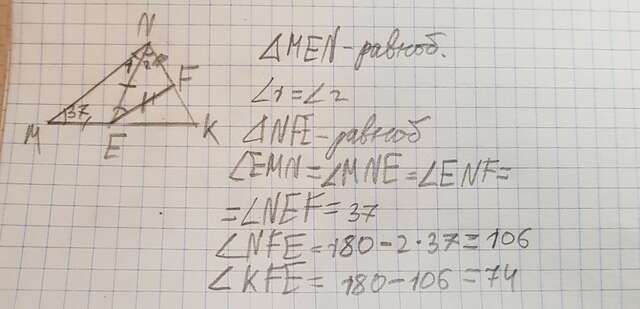 N
1 2
F
37
M
E
K
△MEN - равноб.
∠1 = ∠2
△NFE - равноб
∠EMN = ∠MNE = ∠ENF =
= ∠NEF = 37
∠NFE = 180 - 2 · 37 = 106
∠KFE = 180 - 106 = 74